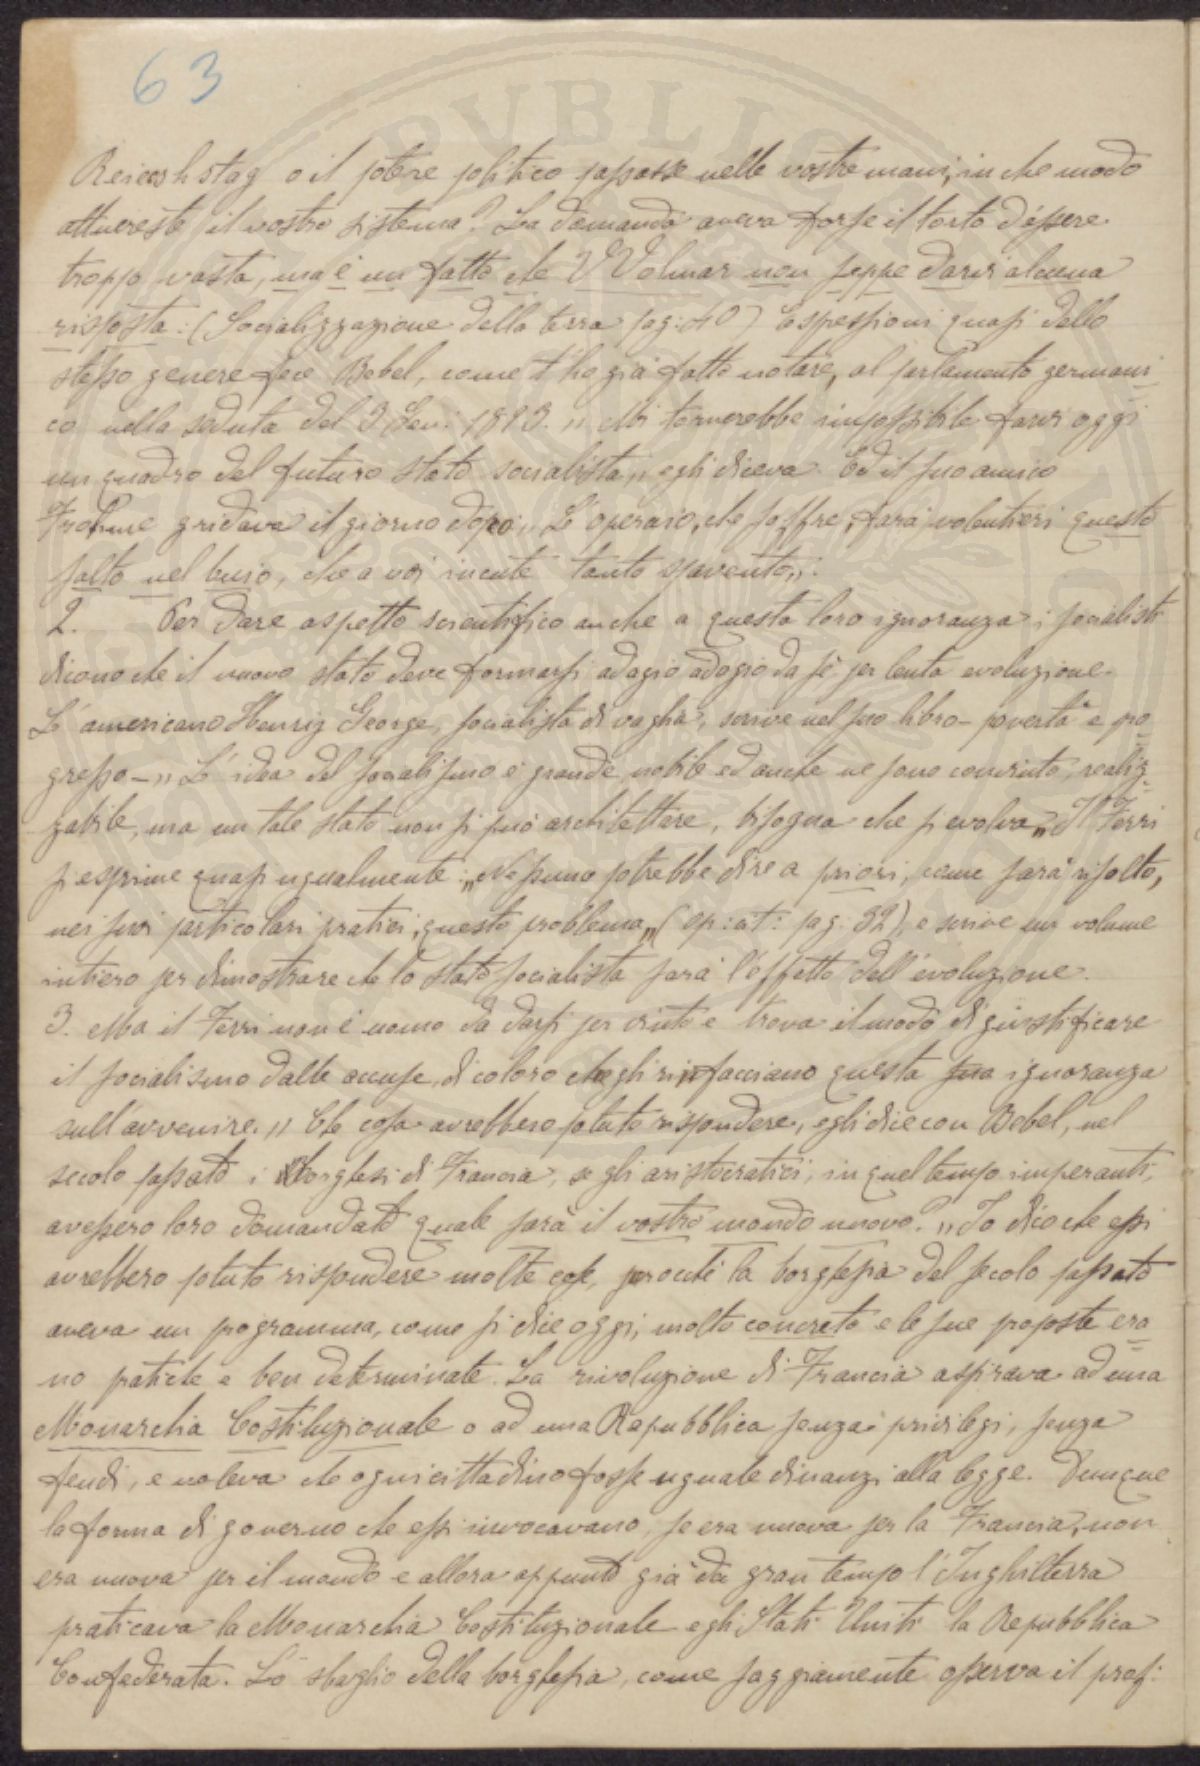 63
Reicshstag o il potere politico passasse nelle vostre mani, in che modo
attuereste il vostro sistema? La domanda aveva forse il torto d'essere
troppo vasta, ma è un fatto che V Volmar non seppe darvi alcuna
risposta: (Socializzazione della terra pag: 40) Espressioni quasi dello
stesso genere fece Bebel, come t'ho già fatto notare, al parlamento germani-
co nella seduta del 3 Gen: 1893. „ Mi tornerebbe impossibile farvi oggi
un quadro del futuro stato socialista „ egli diceva. Ed il suo amico
Frohme gridava il giorno dopo: „ L'operaio, che soffre, farà volentieri questo
salto nel buio, che a voi incute tanto spavento „.
2. Per dare aspetto scientifico anche a questa loro ignoranza i socialisti
dicono che il nuovo stato deve formarsi adagio adagio da sè per lenta evoluzione.
L'americano Henrij George, socialista di vaglia, scrive nel suo libro - povertà e pro-
gresso - „ L'idea del socialismo è grande nobile ed anche ne sono convinto, realiz-
zabile, ma un tale stato non si può architettare, bisogna che si evolva „ Il Ferri
si esprime quasi ugualmente: „ Nessuno potrebbe dire a priori, come sarà risolto,
nei suoi particolari pratici, questo problema „ (op: cit: pag. 32), e scrive un volume
intiero per dimostrare che lo stato socialista sarà l'effetto dell'evoluzione.
3. Ma il Ferri non è uomo da darsi per vinto e trova il modo di giustificare
il socialismo dalle accuse, di coloro che gli rinfacciano questa sua ignoranza
sull'avvenire. „ Che cosa avrebbero potuto rispondere, egli dice con Bebel, nel
secolo passato i borghesi di Francia, se gli aristocratici, in quel tempo imperanti,
avessero loro domandato quale sarà il vostro mondo nuovo? „ Io dico che essi
avrebbero potuto rispondere molte cose, perocchè la borghesia del secolo passato
aveva un programma, come si dice oggi, molto concreto e le sue proposte era-
no pratiche e ben determinate. La rivoluzione di Francia aspirava ad una
Monarchia Costituzionale o ad una Repubblica senza privilegi, senza
feudi, e voleva che ogni cittadino fosse uguale dinanzi alla legge. Dunque
la forma di governo che essi invocavano, se era nuova per la Francia, non
era nuova per il mondo e allora appunto già da gran tempo l'Inghilterra
praticava la Monarchia Costituzionale e gli Stati Uniti la Repubblica
Confederata. Lo sbaglio della borghesia, come saggiamente osserva il prof: